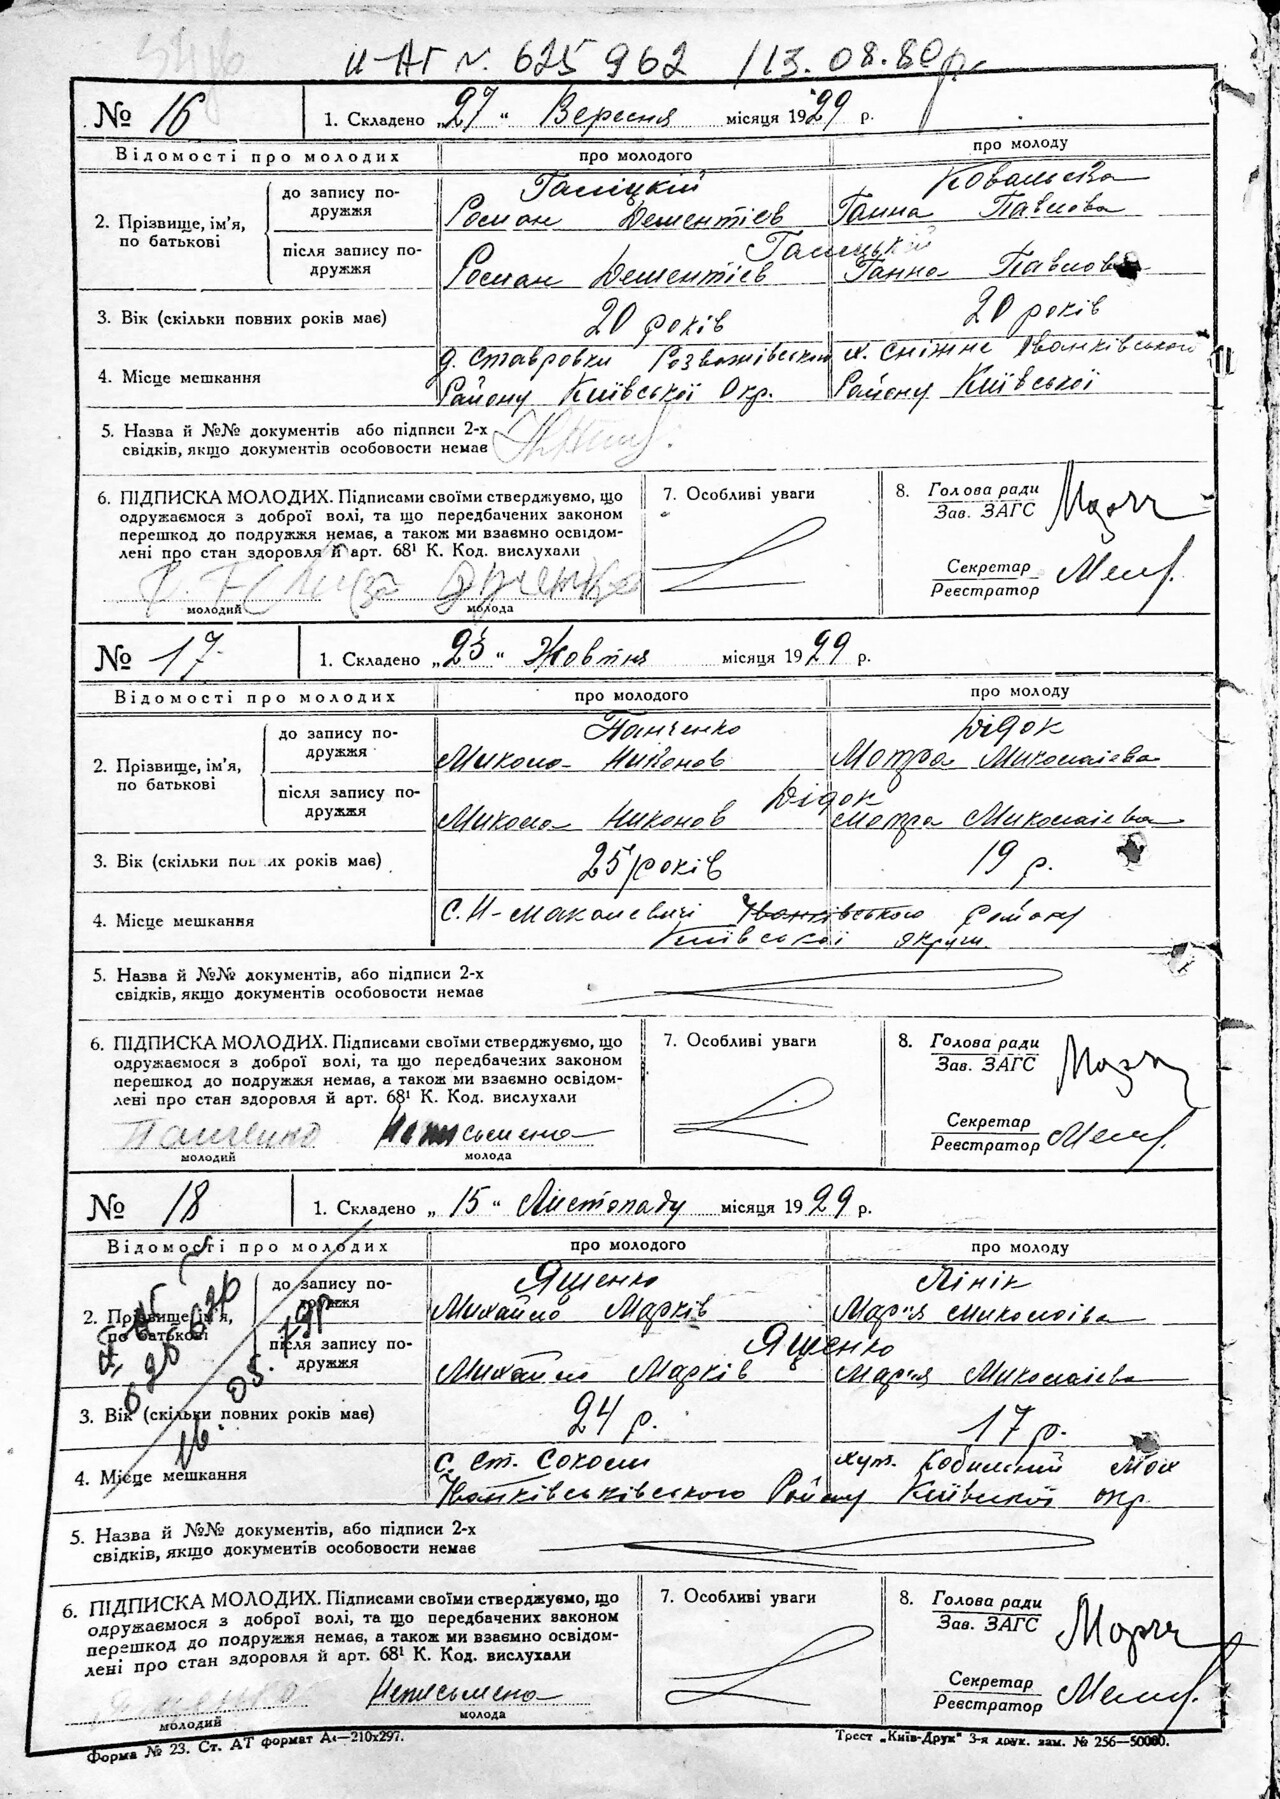 И-АГ №. 625962 /13.08.80р.
№ 16 1. Складено „27“ Вересня місяця 1929 р.
Відомості про молодих про молодого про молоду
2. Прізвище, ім'я, по батькові
до запису по-
дружжя
Галіцкій Ковальска
Роман Дементієв Ганна Павлова
після запису по-
дружжя
Галецький
Роман Дементієв Ганна Павлова
3. Вік (скільки повних років має) 20 років 20 років
4. Місце мешкання
д. Ставровки Розважівськ х. Сніжне Іванківського
Району Київської Окр. Району Київської
5. Назва й №№ документів або підписи 2-х
свідків, якщо документів особовости немає
6. ПІДПИСКА МОЛОДИХ. Підписами своїми стверджуємо, що
одружаємося з доброї волі, та що передбачених законом
перешкод до подружжя немає, а також ми взаємно освідом-
лені про стан здоровля й арт. 68¹ К. Код. вислухали
молодий молода
7. Особливі уваги
8. Голова ради
Зав. ЗАГС
Секретар
Реєстратор
№ 17 1. Складено „23“ Жовтня місяця 1929 р.
Відомості про молодих про молодого про молоду
2. Прізвище, ім'я,
по батькові
до запису по-
дружжя
Панченко Дідок
Микола Никонов Мотра Миколаієва
після запису по-
дружжя
Дідок
Микола Никонов Мотра Миколаієва
3. Вік (скільки повних років має) 25 років 19 р.
4. Місце мешкання
с. Н-Макалевичі Іванківського Району
Київської округи
5. Назва й №№ документів, або підписи 2-х
свідків, якщо документів особовости немає
6. ПІДПИСКА МОЛОДИХ. Підписами своїми стверджуємо, що
одружаємося з доброї волі, та що передбачених законом
перешкод до подружжя немає, а також ми взаємно освідом-
лені про стан здоровля й арт. 68¹ К. Код. вислухали
Панченко Неписьмена
молодий молода
7. Особливі уваги
8. Голова ради
Зав. ЗАГС
Секретар
Реєстратор
№ 18 1. Складено „15“ Листопаду місяця 1929 р.
Відомості про молодих про молодого про молоду
2. Прізвище, ім'я,
по батькові
до запису по-
дружжя
Ященко Лінік
Михайло Марків Марія Миколаіва
після запису по-
дружжя
Ященко
Михайло Марків Марія Миколаієва
3. Вік (скільки повних років має) 24 р. 17 р.
4. Місце мешкання
с. Ст. Соколи хут. Кобилський Мох
Іванківськівського Району Київської окр.
5. Назва й №№ документів, або підписи 2-х
свідків, якщо документів особовости немає
6. ПІДПИСКА МОЛОДИХ. Підписами своїми стверджуємо, що
одружаємося з доброї волі, та що передбачених законом
перешкод до подружжя немає, а також ми взаємно освідом-
лені про стан здоровля й арт. 68¹ К. Код. вислухали
Ященко Неписьмена
молодий молода
7. Особливі уваги
8. Голова ради
Зав. ЗАГС
Секретар
Реєстратор
Форма № 23. Ст. АТ формат А₄—210х297. Трест „Київ-Друк“ 3-я друк. зам. № 256—50000.